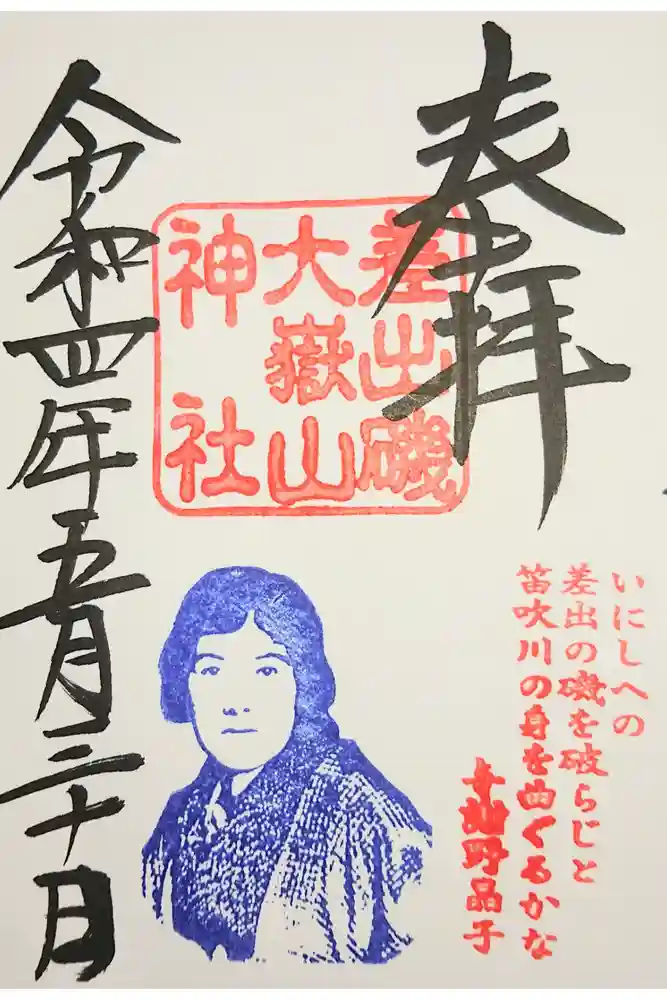 奉拝
差出磯
大嶽山
神社
いにしへの
差出の磯を破らじと
笛吹川の身を曲ぐるかな
与謝野晶子
令和四年五月三十日